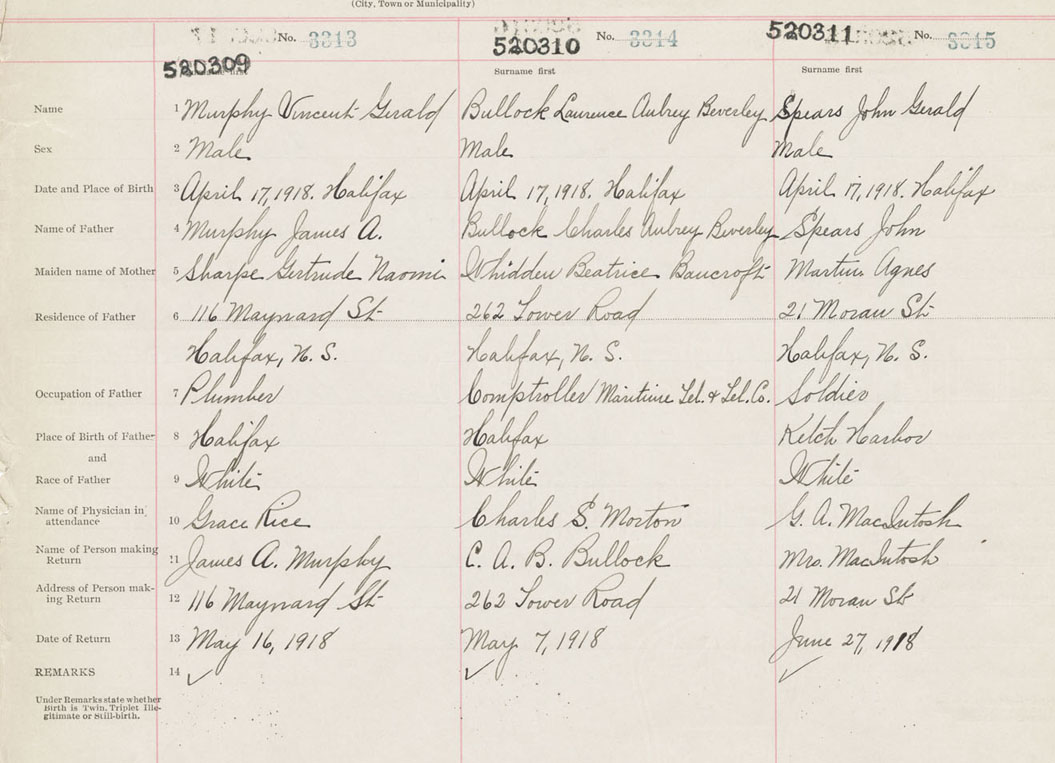 (City, Town or Municipality)
No. 3313 No. 3314 No. 3315
520309 520310 520311
Surname first Surname first
Name 1 Murphy Vincent Gerald Bullock Laurence Aubrey Beverley Spears John Gerald
Sex 2 Male Male Male
Date and Place of Birth 3 April 17, 1918. Halifax April 17, 1918. Halifax April 17, 1918. Halifax
Name of Father 4 Murphy James A. Bullock Charles Aubrey Beverley Spears John
Maiden name of Mother 5 Sharpe Gertrude Naomi Whidden Beatrice Bancroft Martin Agnes
Residence of Father 6 116 Maynard St 262 Tower Road 21 Moran St
Halifax, N. S. Halifax, N. S. Halifax, N. S.
Occupation of Father 7 Plumber Comptroller Maritime Tel. & Tel. Co. Soldier
Place of Birth of Father 8 Halifax Halifax Ketch Harbor
and
Race of Father 9 White White White
Name of Physician in attendance 10 Grace Rice Charles S. Morton G. A. MacIntosh
Name of Person making Return 11 James A. Murphy C. A. B. Bullock Mrs. MacIntosh
Address of Person making Return 12 116 Maynard St 262 Tower Road 21 Moran St
Date of Return 13 May 16, 1918 May 7, 1918 June 27, 1918
REMARKS 14 ✓ ✓ ✓
Under Remarks state whether
Birth is Twin, Triplet Ille-
gitimate or Still-birth.